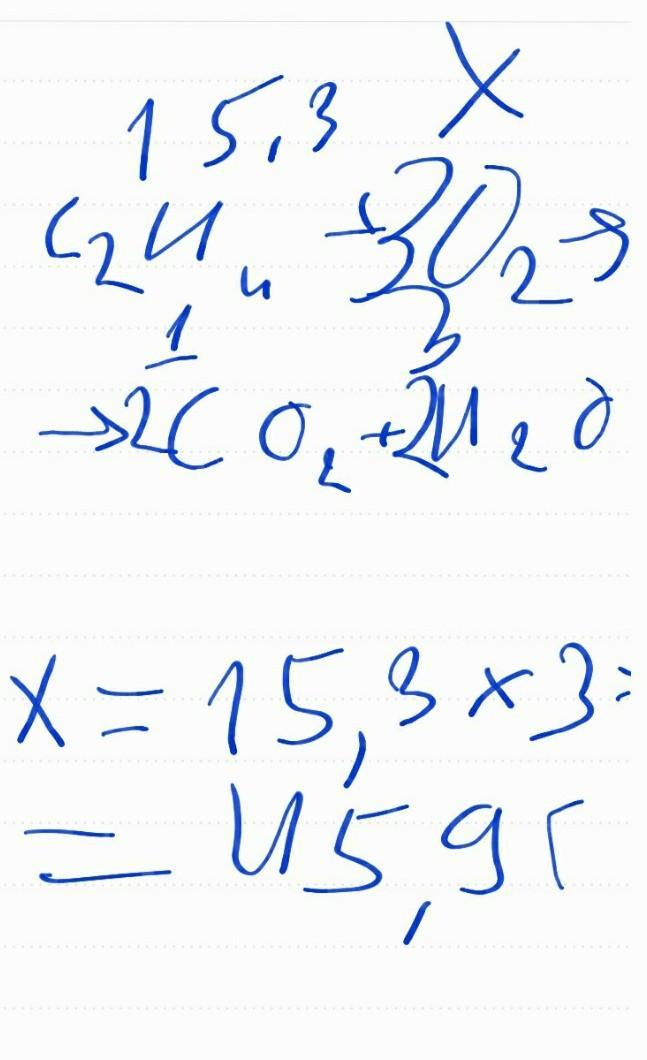 15,3 X
C₂H₄ + 3O₂ →
1 3
→ 2CO₂ + 2H₂O
X = 15,3 × 3 =
= 45,9 г